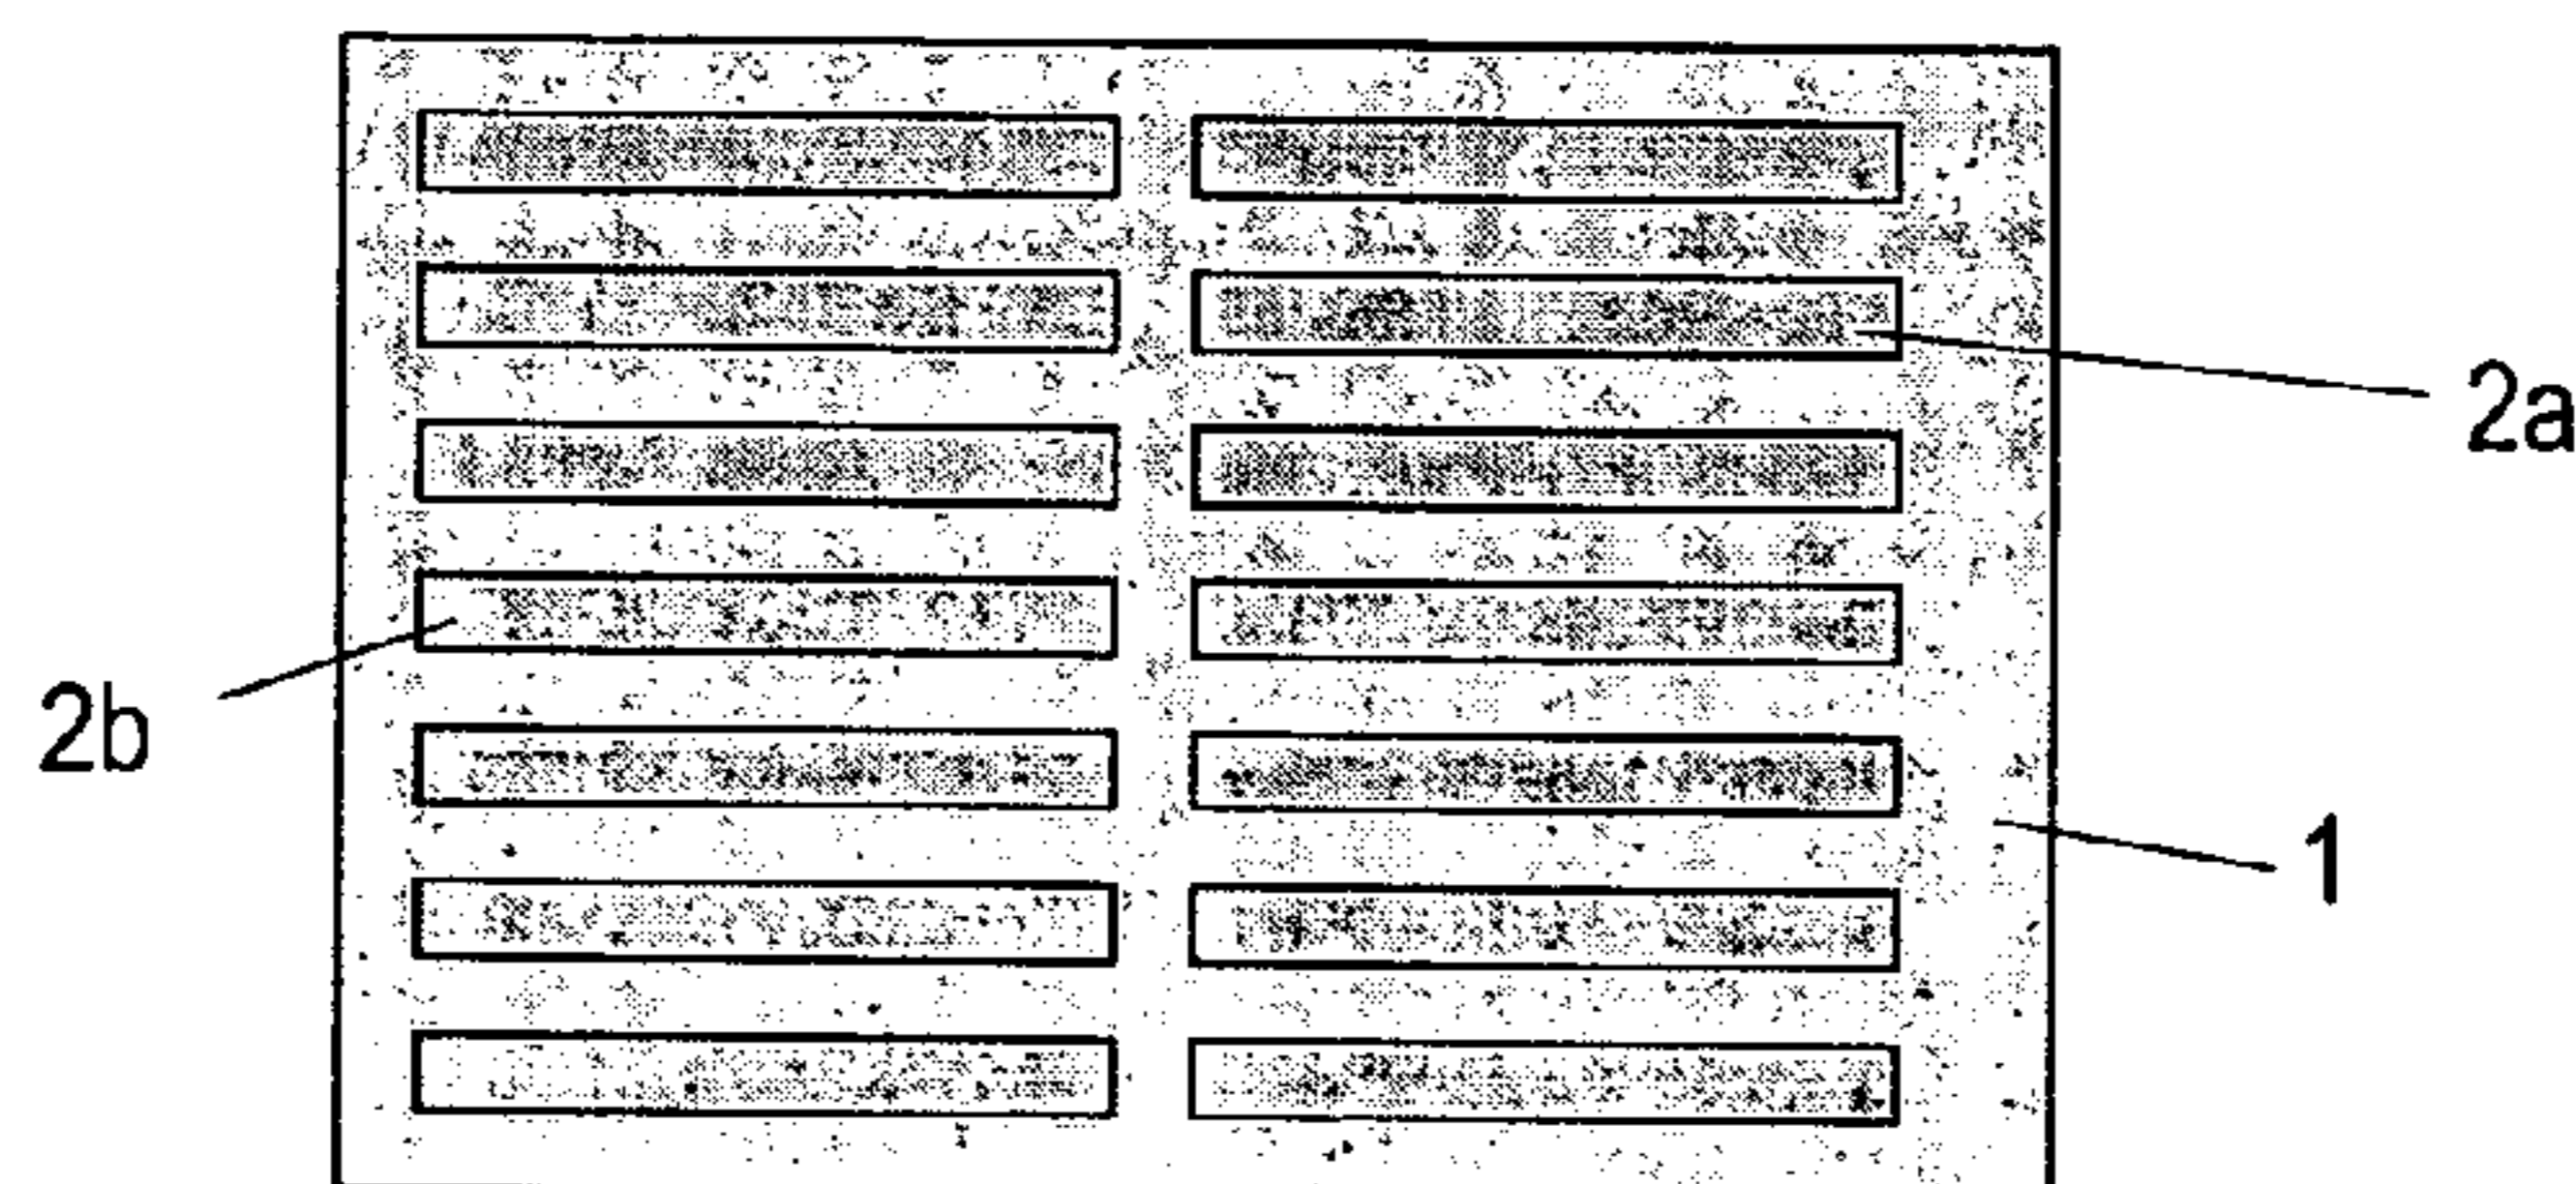 2a
2b
1